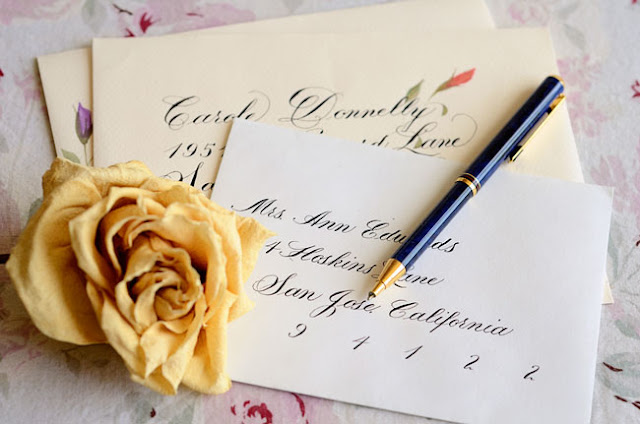 Carole Donnelly
Lane
Mrs. Ann Edwards
4 Hoskins Lane
San Jose, California
9 4 1 2 2